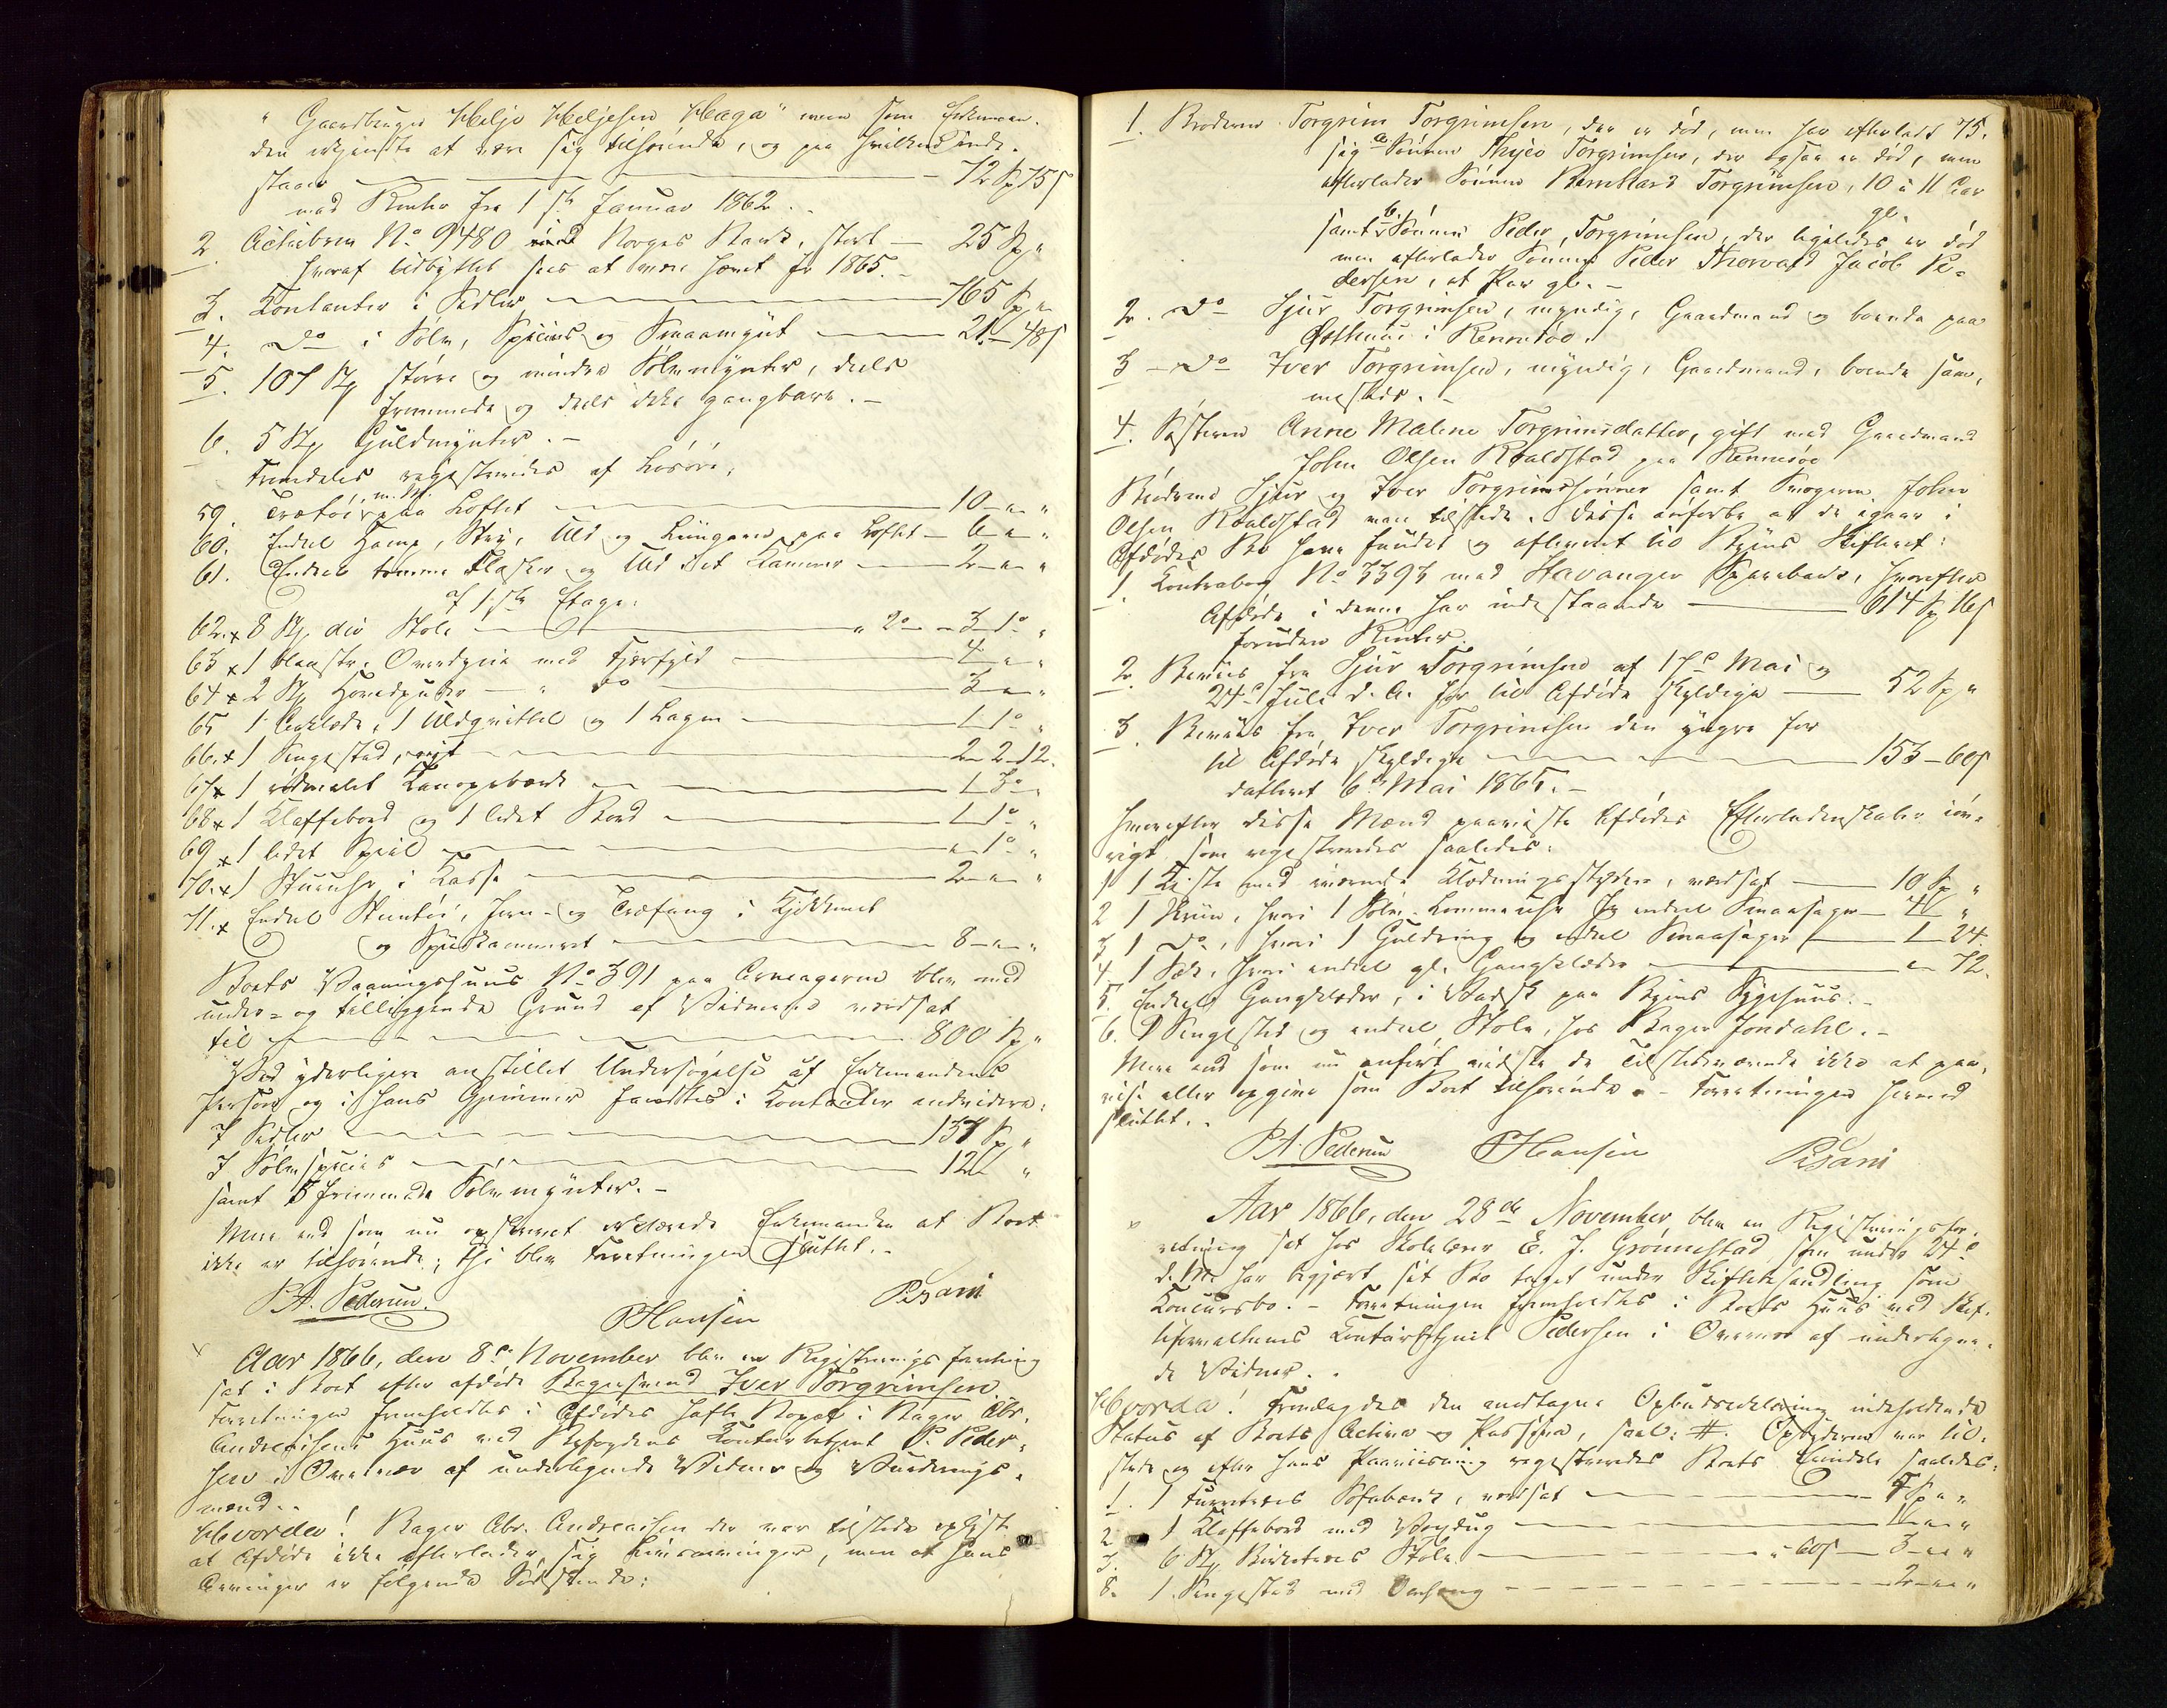 "Gaardbruger Helje Heljesen Haga" men som Enkeman-
den erkjendte at være sig tilhørende, og paa hvilken Inde-
staar 72 Sp 75 s
med Renter fra 1ste Januar 1862.
2. Actiebrev No 9480 i Norges Bank, stort — 25 Sp "
hvoraf Udbyttet sees at være hævet for 1865.
3. Kontanter i Sedler — 765 Sp "
4. Do i Sølv, Species og Smaamynt — 21 - 48 s
5. 107 Stk større og mindre Sølvmynter, deels
fremmede og deels ikke gangbare. -
6. 5 Stk Guldmynter. -
Fremdeles registreredes af Løsøre:
59. Trætøi m. M. paa Loftet — 10 - " - "
60. Endeel Hamp, Stry, Uld og Liingarn paa Loftet — 6 - " "
61. Endeel tomme Flasker og Uld i et Kammer — 2 - " "
af 1ste Etage:
62. x 8 Stk div Stole — " 2o - 3 1o "
63 x 1 blaastr. Overdyne med Fjærfyld — 4 " "
64 x 2 Stk Hovedputer — " do — 3 - " "
65 1 Aaklæde, 1 Uldqvittel og 1 Lagen — 1 1o "
66. x 1 Sengested, — 2 - 2 - 12.
67 x 1 rødmalet Kanapebænk — 1 3o "
68 x 1 Klaffebord og 1 lidet Bord — 1 1o "
69 x 1 lidet Speil — " 1o "
70. x 1 Stueuhr i Kasse — 2 - " "
71. x Endeel Steentøi, Jern- og Træfang i Kjøkkenet
og Spiiskammeret — 8 - " "
Boets Vaaningshuus No 391 paa Arneageren blev med
under- og tilliggende Grund af Vidnerne værdsat
til — 800 Sp "
Ved yderligere anstillet Undersøgelse af Enkemandens
Person og i hans Gjemmer fandtes i Kontanter endvidere:
I Sedler — 137 Sp "
I Sølvspecies — 12 "
samt 8 fremmede Sølvmynter. -
Mere end som nu opskrevet erklærede Enkemanden at Boet
ikke er tilhørende; thi blev Forretningen sluttet. -
P A. Pedersen. P Hansen
Aar 1866, den 8de November blev en Registreringsforretning
sat i Boet efter afdøde Bagersvend Iver Torgrimsen.
Forretningen fremholdtes i Afdødes hafte Bopæl i Bager Abr.
Andreasens Huus ved Byfogdens Kontorbetjent P. Peder-
sen i Overvær af undertegnede Vidner og Vurderings-
mænd. -
Hvorda! Bager Abr. Andreasen der var tilstede oplyste
at Afdøde ikke efterlader sig Livsarvinger, men at hans
Arvinger er følgende Sødskende:
1. Broderen Torgrim Torgrimsen, der er død, men har efterladt 75.
sig a Sønnen Thjes Torgrimsen, der ogsaa er død, men
efterlader Sønnen Bernhard Torgrimsen, 10 à 11 Aar gl.
samt b. Sønnen Peder Torgrimsen, der ligeledes er død
men efterlader Sønnen Peder Thorvald Jacob Pe-
dersen, et Par gl. -
2. Do Sjur Torgrimsen, myndig, Gaardmand og boende paa
Østhuus i Rennesøe.
3 - Do Iver Torgrimsen, myndig, Gaardmand, boende sam-
mesteds. -
4. Søsteren Anne Malene Torgrimsdatter, gift med Gaardmand
John Olsen Roaldstad paa Rennesøe
Brødrene Sjur og Iver Torgrimssønner samt Svogeren John
Olsen Roaldstad var tilstede. Disse anførte at de igaar i
Afdødes Bo have fundet og afleveret til Byens Skifteret:
1. Kontrabog No 3393 med Stavanger Sparebank, hvorefter
Afdøde i denne har indestaaende — 614 Sp 16 s
foruden Renter.
2. Beviis fra Sjur Torgrimsen af 17de Mai og
24de Juli d. A. for til Afdøde skyldige — 52 Sp "
3. Beviis fra Iver Torgrimsen den yngre for
til Afdøde skyldige — 153 - 60 s
dateret 6te Mai 1865. -
Hvorefter disse Mænd paaviste Afdødes Efterladenskaber iøv-
rigt, som registreredes saaledes:
1 1 Kiste med iværende Klædningsstykker, værdsat — 10 Sp "
2 1 Skriin, hvori 1 Sølv-Lommeuhr og endeel Smaasager — 4 "
3 1 do, hvori 1 Guldring og endeel Smaasager — 1 24
4. 1 Sæk, hvori endeel gl. Gangklæder — " 72.
5. Endeel Gangklæder, i Vadsk paa Byens Sygehuus. -
6. 1 Sengested og endeel Stole, hos Bager Jondahl. -
Mere end som nu anført vidste de Tilstedeværende ikke at paa-
vise eller opgive som Boet tilhørende. - Forretningen hermed
sluttet. -
P A. Pedersen P Hansen
Aar 1866, den 28de November blev en Registreringsfor-
retning sat hos Skolelærer E. J. Grønnestad som under 24de
d. M. har begjært sit Bo taget under Skiftebehandling som
Concursbo. - Forretningen fremholdtes i Boets Huus ved Skif-
teforvalterens Kontorbetjent Pedersen i Overvær af undertegne-
de Vidner. -
Hvorda! Fremlagdes den modtagne Opbudserklæring indeholdende
Status af Boets Activa og Passiva, saal. #. Opbyderen var til-
stede og efter hans Paaviisning registreredes Boets Eiendele saaledes:
1. 1 Furretræes Sofabænk, værdsat — Sp " "
2 1 Klaffebord med Voxdug — 1 - " "
3. 6 Stk Birketræes Stole — " 60 s — 3 - " "
1 Sengested med Omhæng — 2 - " "